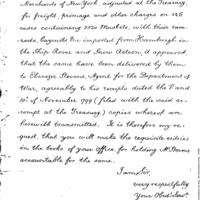 Merchants of New York, adjusted at the Treasury,
for freight, primage and other charges on 126
cases containing 2520 Muskets, with their
bayonets &c imported from Hamburgh in
the Ship Rover and Snow Nelson, it appeared,
that the same have been delivered by them
to Ebenezer Stevens, Agent for the Department of
War, agreeably to his receipts dated the 9 and
10th of November 1799 (filed with the said
account at the Treasury) copies whereof are
herewith transmitted. It is therefore my re-
quest, that you will make the requisite entries
in the books of your Office, for holding Mr Stevens
accountable for the same.
I am Sir,
very respectfully
Your Obdt Servt